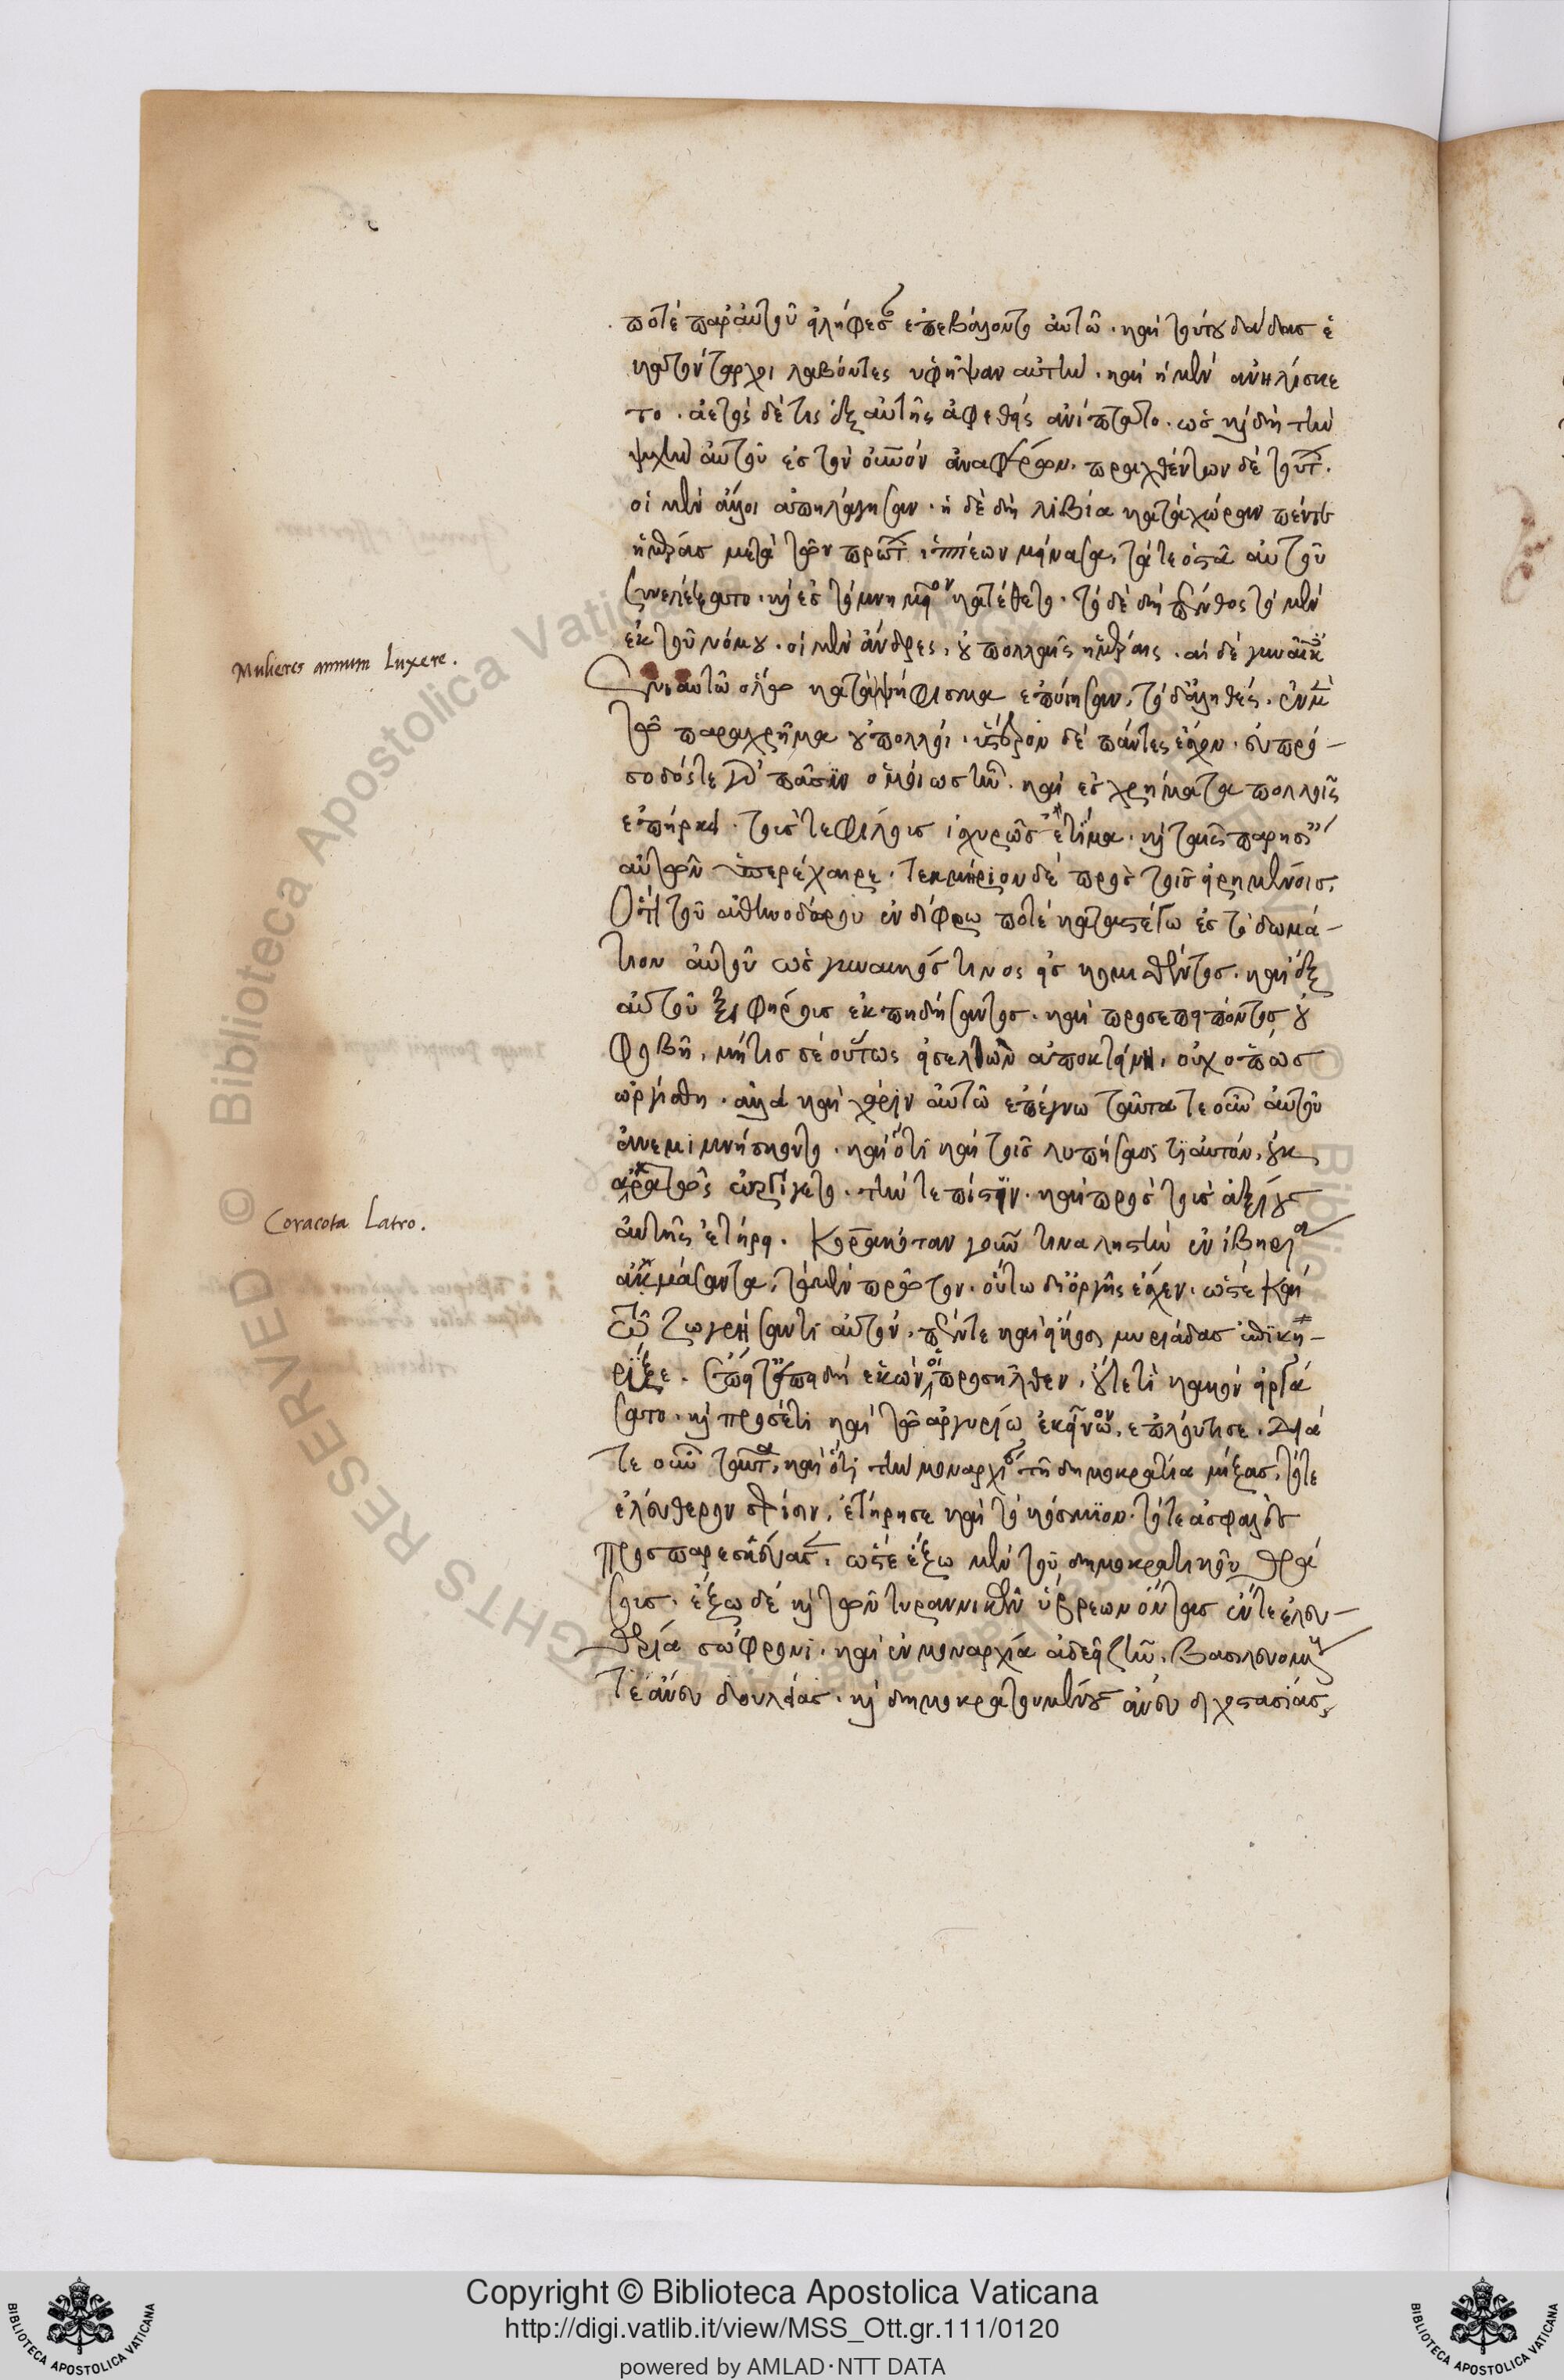 ποτὲ παρ' αὐτοῦ εἰλήφεσαν ἐπέβαλον αὐτῶ. καὶ τούτου δᾶδας ἑ
κατόνταρχοι λαβόντες ὑφῆψαν αὐτὴν. καὶ ἡ μὲν ἀνηλίσκε
το. ἀετὸς δέ τις ἐξ αὐτῆς ἀφεθεὶς ἀνίπτατο. ὡς καὶ δὴ τὴν
ψυχὴν αὐτοῦ ἐς τὸν οὐρανὸν ἀναφέρων. πραχθέντων δὲ τούτων.
οἱ μὲν ἄλλοι ἀπηλλάγησαν. ἡ δὲ δὴ λιβία κατὰ χώραν πέντε
ἡμέρας μετὰ τῶν πρώτων ἱππέων μείνασα, τά τε ὀστᾶ αὐτοῦ
συνελέξατο. καὶ ἐς τὸ μνημεῖον κατέθετο. τὸ δὲ δὴ πένθος τὸ μὲν
ἐκ τοῦ νόμου. οἱ μὲν ἄνδρες, οὐ πολλαῖς ἡμέραις. αἱ δὲ γυναῖκες
ἐνιαυτῶ ὅλω κατὰ ψήφισμα ἐποίησαν, τὸ δ' ἀληθὲς. ἐν μὲν
τῶ παραχρῆμα οὐ πολλοὶ. ὕστερον δὲ πάντες ἔσχον. εὐπρό-
σοδός τε γὰρ πᾶσιν ὁμοίως ἦν. καὶ ἐς χρήματα πολλοῖς
ἐπήρκει. τούς τε φίλους ἰσχυρῶς ἐτίμα. καὶ ταῖς παρησίαις
αὐτῶν ὑπερέχαιρε. τεκμήριον δὲ πρὸς τοῖς εἰρημένοις,
Ὅτι τοῦ ἀθηνοδώρου ἐν δίφρω ποτὲ καταστέγω ἐς τὸ δωμά-
τιον αὐτοῦ ὡς γυναικός τινος εἰσκομισθέντος. καὶ ἐξ
αὐτοῦ ξιφήρους ἐκπηδήσαντος. καὶ προσεπειπόντος οὐ
φοβῆ, μή τις σὲ οὕτως εἰσελθὼν ἀποκτείνη, οὐχ ὅπως
ὠργίσθη. ἀλλὰ καὶ χάριν αὐτῶ ἐπέγνω ταῦτά τε οὖν αὐτοῦ
ἀνεμιμνήσκοντο. καὶ ὅτι καὶ τοῖς λυπήσασί τι αὐτὸν, οὐκ
ἀκράτως ὠργίζετο. τήν τε πίστιν. καὶ πρὸς τοὺς ἀξίους
αὐτῆς ἐτήρει. Κοροκόταν γοῦν τινα ληστὴν ἐν ἰβηρία
ἀκμάσαντα, τὸ μὲν πρῶτον. οὕτω δι' ὀργῆς ἔσχεν. ὥστε καὶ
τῶ ζωγρήσαντι αὐτὸν, πέντε καὶ εἴκοσι μυριάδας ἐπικη-
ρῦξαι. ἔπειτα ἐπειδὴ ἑκὼν οἱ προσῆλθεν, οὔτε τι κακὸν εἰργά
σατο. καὶ προσέτι καὶ τῶ ἀργυρίω ἐκείνω, ἐπλούτισε. Διά
τε οὖν ταῦτα, καὶ ὅτι τὴν μοναρχίαν τῆ δημοκρατία μίξας, τό τε
ἐλεύθερον σφίσιν, ἐτήρησε καὶ τὸ κόσμιον. τό τε ἀσφαλὲς
προσπαρεσκεύασεν. ὥστε ἔξω μὲν τοῦ δημοκρατικοῦ θρά
σους. ἔξω δὲ καὶ τῶν τυραννικῶν ὕβρεων ὄντας ἔν τε ἐλευ-
θερία σώφρονι. καὶ ἐν μοναρχία ἀδεεῖ ζῆν. βασιλευομένους
τε ἄνευ δουλείας. καὶ δημοκρατουμένους ἄνευ διχοστασίας,
Mulieres annum Luxere.
Coracota Latro.
© Biblioteca Apostolica Vaticana
Copyright © Biblioteca Apostolica Vaticana
http://digi.vatlib.it/view/MSS_Ott.gr.111/0120
powered by AMLAD·NTT DATA
BIBLIOTECA APOSTOLICA VATICANA
BIBLIOTECA APOSTOLICA VATICANA